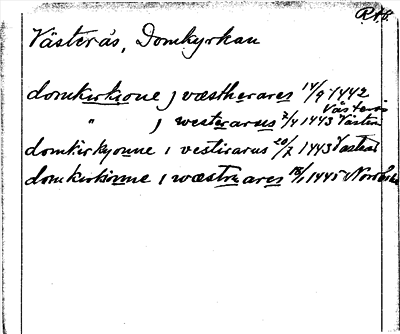 RAp.
Västerås, Domkyrkan
domkirkione j væstherares 14/9 1442
Västerås
" j westerarus 2/4 1443 Västerås
domkirkyonne i vestirarus 20/7 1443 Västerås
domkirkinne i wæstraares 18/1 1445